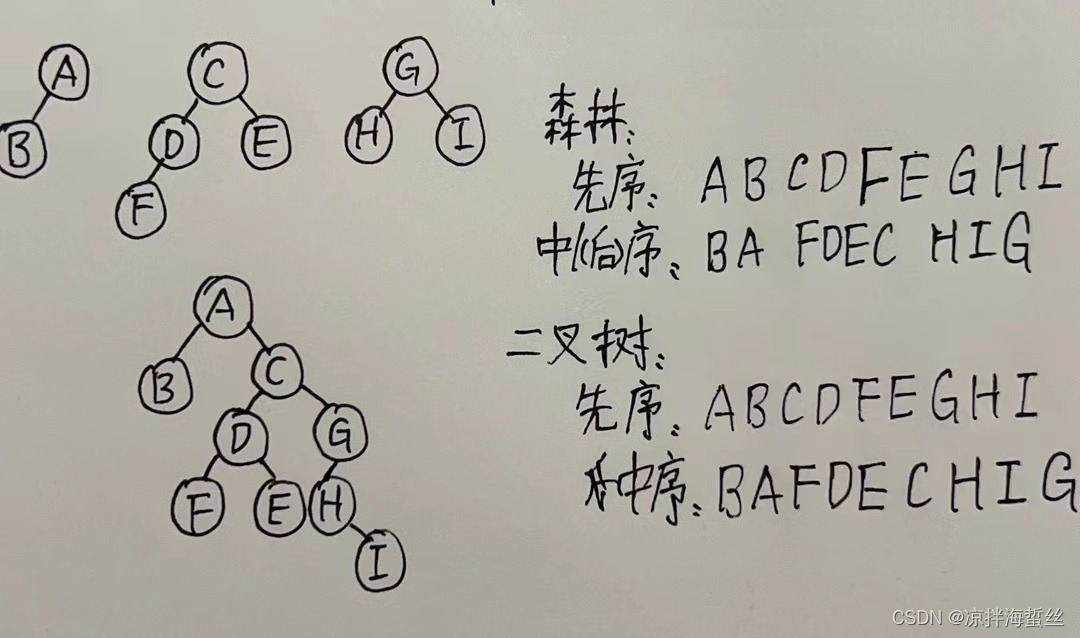 A
B
C
D
E
F
G
H
I
森林:
先序: ABCDFEGHI
中(后)序: BA FDEC HIG
A
B
C
D
G
F
E
H
I
二叉树:
先序: ABCDFEGHI
中序: BAFDECHIG
CSDN @凉拌海蜇丝